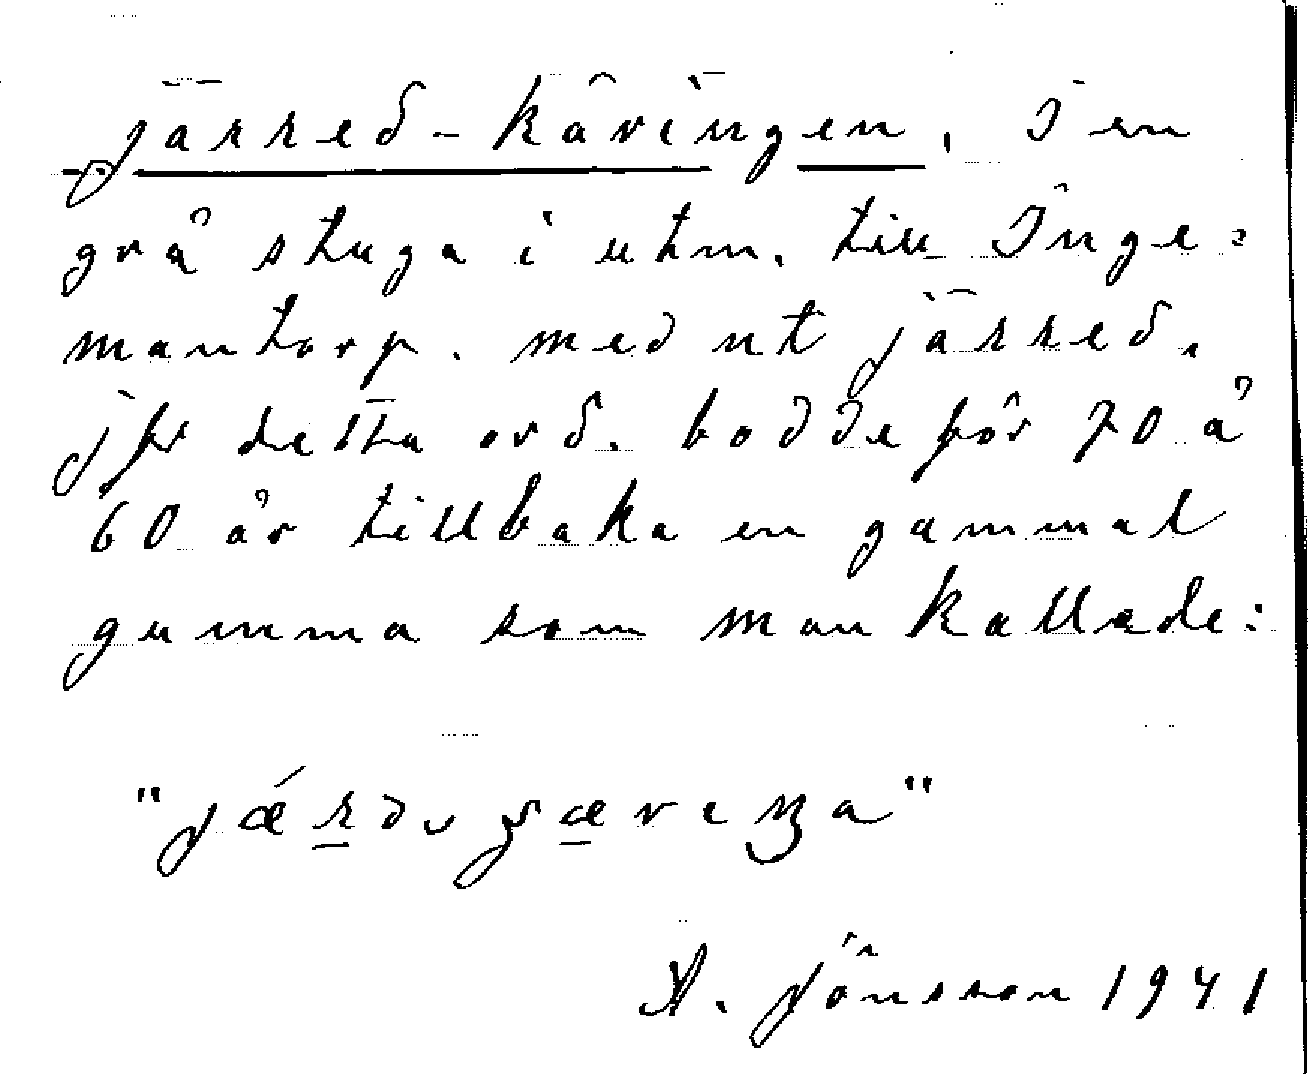 järred-käringen, I en
grå stuga i utm. till Inge=
mantorp. med ut järred,
jfr detta ord. bodde för 70 à
60 år tillbaka en gammal
gumma som man kallade:
A. Jönsson 1941